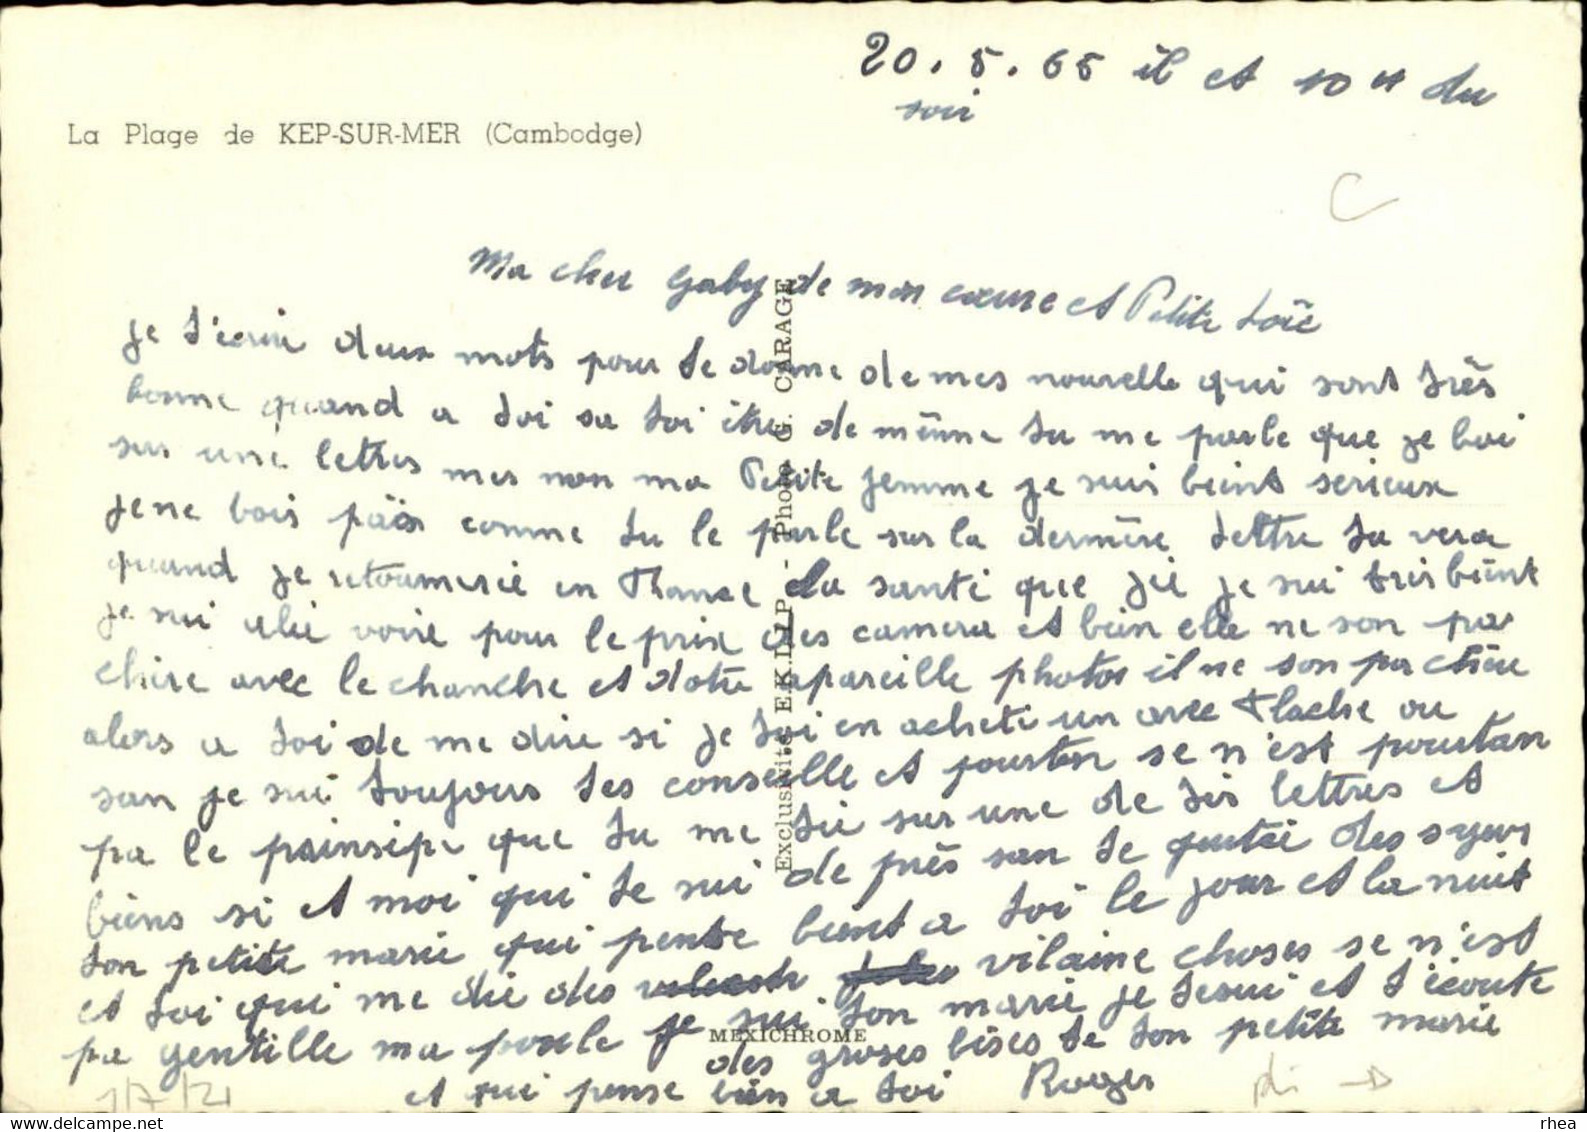 20.5.65 il et 10 H du
soir
La Plage de KEP-SUR-MER (Cambodge)
C
Ma cher Gaby de mon cœure et Petite Loïc
je t'écrie deux mots pour te donne de mes nouvelle qui sont très
bonne quand a toi sa toi être de même tu me parle que je boi
sur une lettres mes non ma Petite femme je suis beint serieux
je ne bois pas comme tu le parle sur la dernière lettre tu vera
quand je retournerié en France La santé que jié je sui tris beint
je sui alié voire pour le prix des camera et bien elle ne son pa
chère avec le chanche et dotre apareille photos il ne son pa chère
alors a toi de me dire si je toi en acheté un avec Flache ou
san je sui toujours tes conseille et pourtan se n'est pourtan
pa le prinsipe que tu me dié sur une de tis lettres et
biens si et moi qui te sui de près san te quitée des syeux
ton petite marie qui pense bient a toi le jour et la nuit
et toi qui me dié des vilaine choses se n'est
pa gentille ma poule je sui ton marie je tesui et t'écoute
des groses bises de ton petite marie
et qui pense bien a toi Roger
Exclusivité E.K.L.I.P. - Photo G. CARAGE
MEXICHROME
1/7/21
delcampe.net
rhea